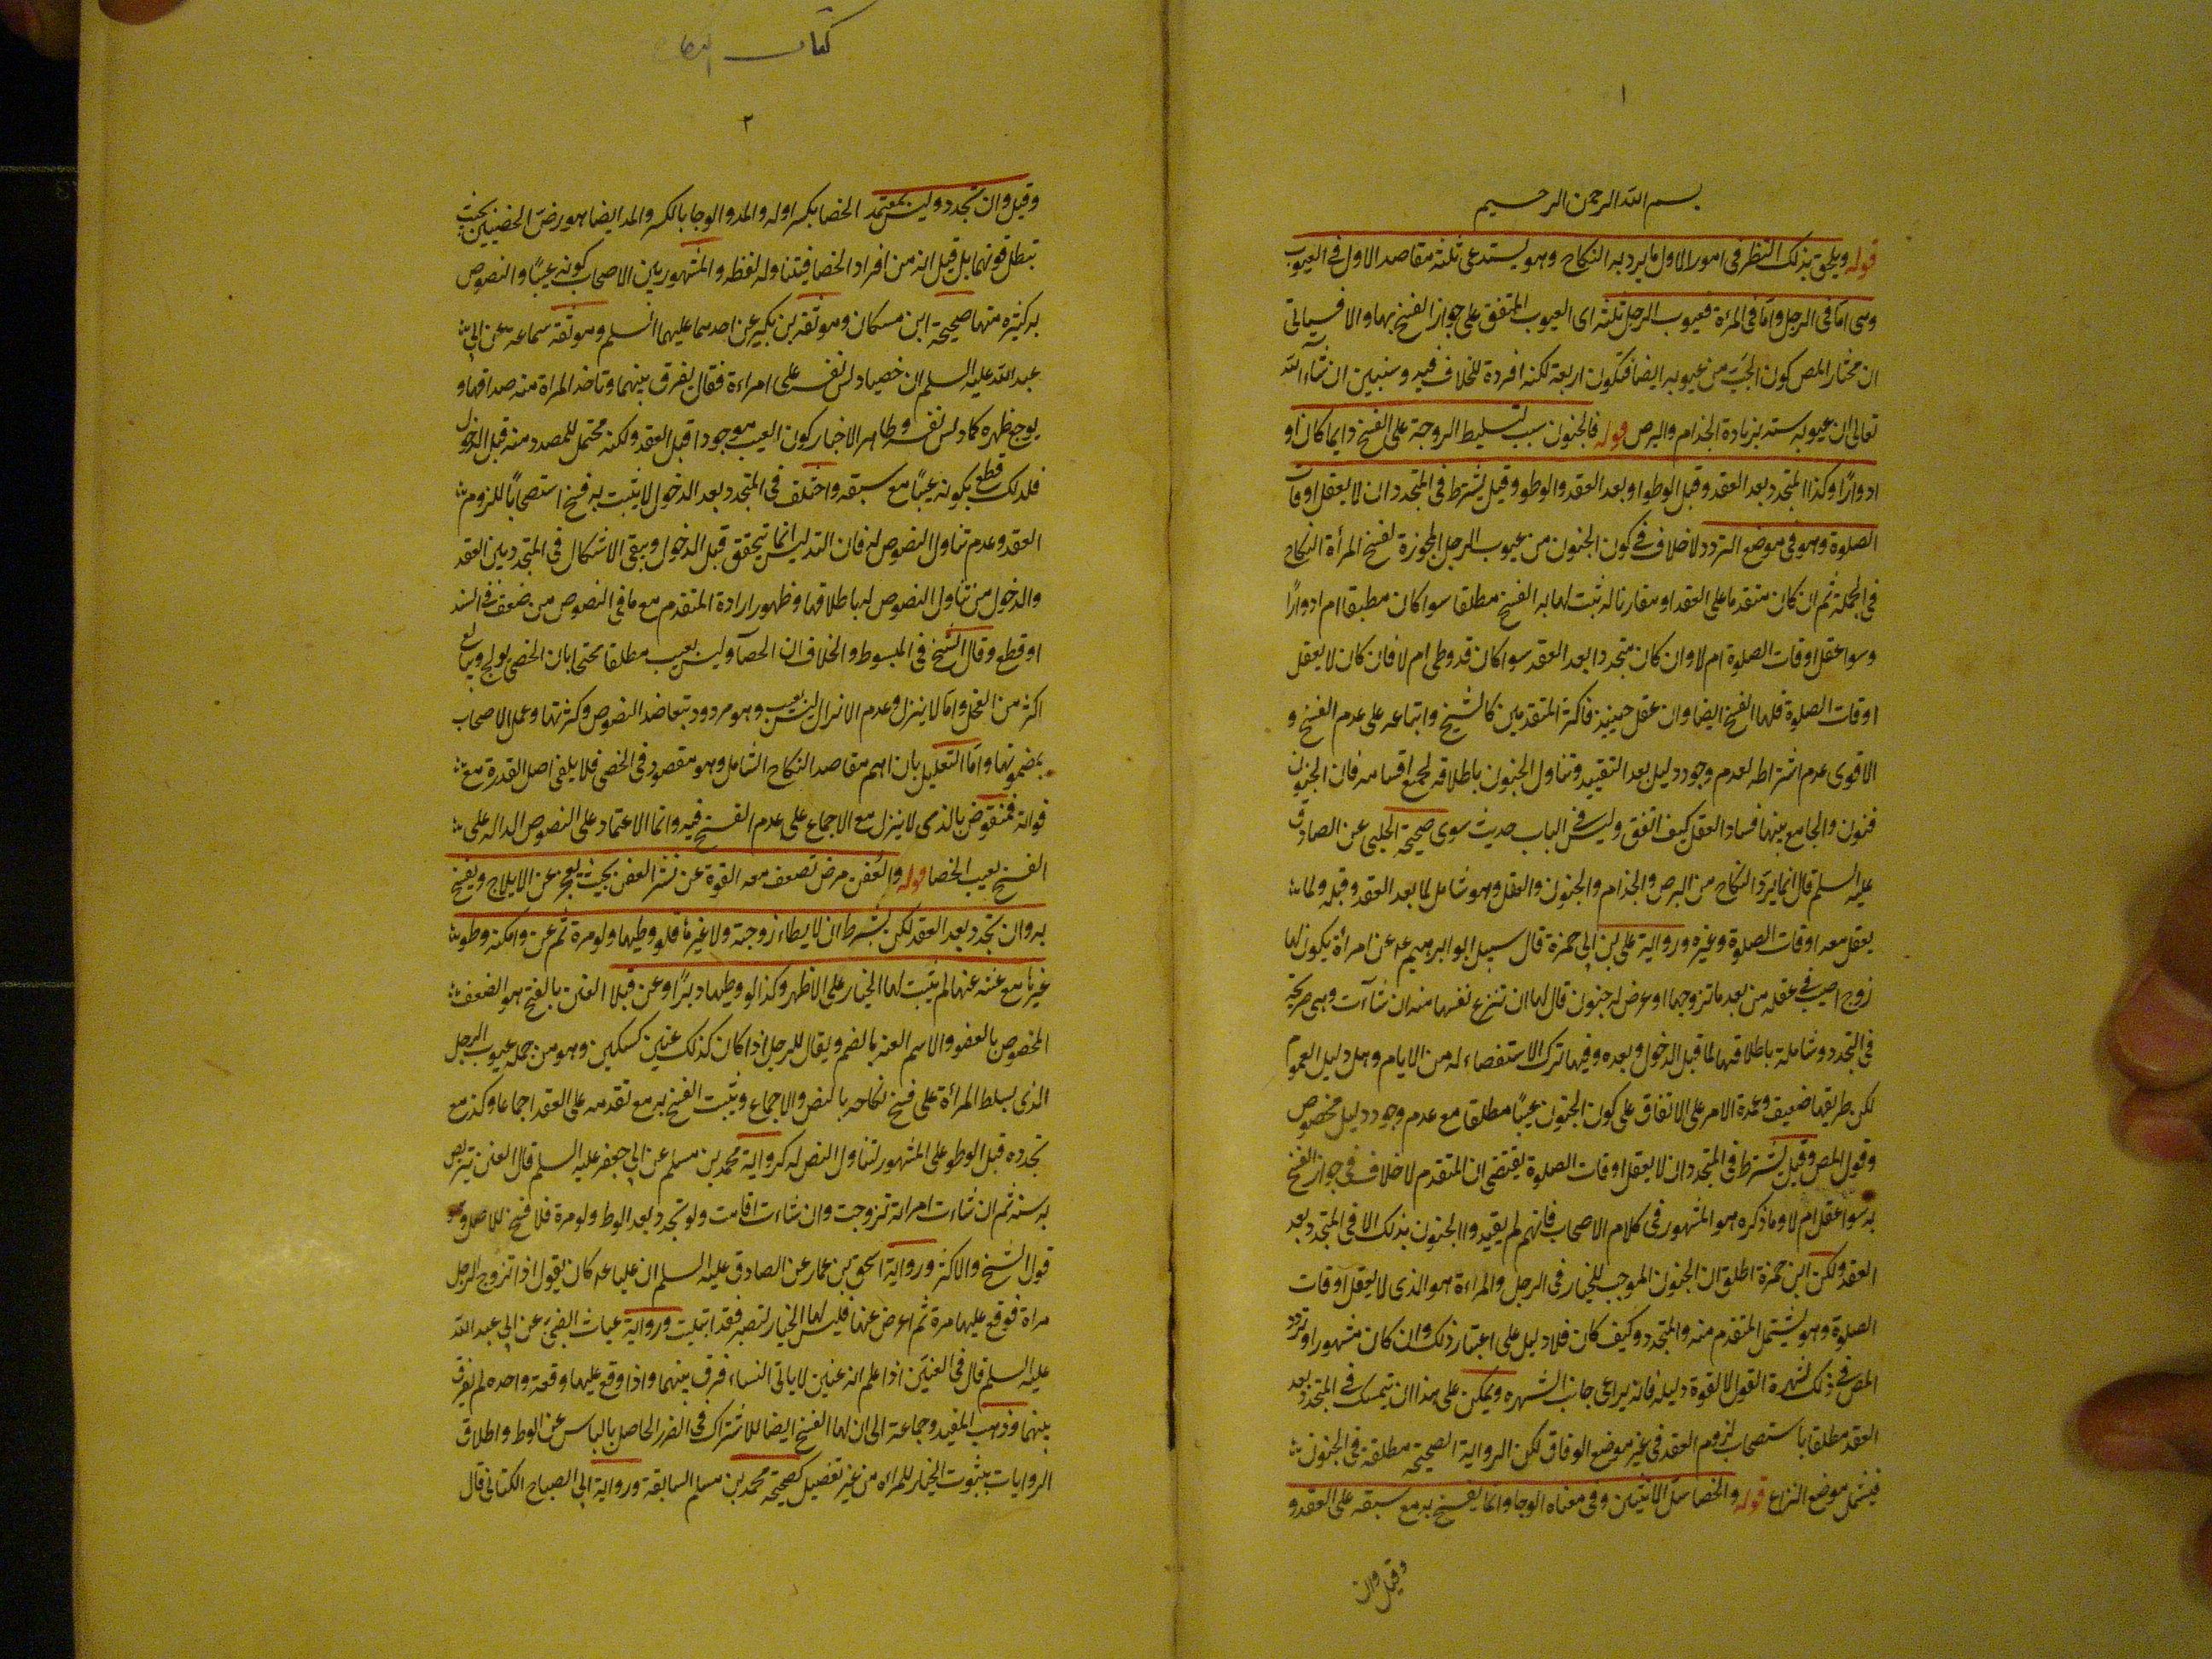 ١
بسم الله الرحمن الرحيم
قوله ويلحق بذلك النظر فى امور الاول ما يرد به النكاح وهو يستدعى ثلثة مقاصد الاول فى العيوب
وهى اما فى الرجل واما فى المرءة فعيوب الرجل ثلثة اى العيوب المتفق على جواز الفسخ بها والا فسياتى
ان مختار المص كون الجب من عيوبه ايضا فتكون اربعة لكنه افرده للخلاف فيه وسنبين ان شاء الله
تعالى ان عيوبه ستة بزيادة الجذام والبرص قوله فالجنون سبب لتسليط الزوجة على الفسخ دايما كان او
ادوارًا وكذا المتجدد بعد العقد وقبل الوطو او بعد العقد والوطو وقيل يشترط فى المتجدد ان لا يعقل اوقات
الصلوة وهو فى موضع التردد لا خلاف فى كون الجنون من عيوب الرجل المجوزة لفسخ المرأة النكاح
فى الجملة ثم ان كان متقدما على العقد او مقارنا له ثبت لها به الفسخ مطلقا سوا كان مطبقا ام ادوارًا
وسوا عقل اوقات الصلوة ام لا وان كان متجددا بعد العقد سوا كان قد وطى ام لا فان كان لا يعقل
اوقات الصلوة فلها الفسخ ايضا وان عقل حينيذ فاكثر المتقدمين كالشيخ واتباعه على عدم الفسخ و
الاقوى عدم اشتراطه لعدم وجود دليل بعد التقييد وتناول الجنون باطلاقه لجميع اقسامه فان الجنون
فنون والجامع بينها فساد العقل كيف اتفق وليس فى الباب حديث سوى صحيحة الحلبى عن الصادق
عليه السلم قال انما يرد النكاح من البرص والجذام والجنون والعفل وهو شامل لما بعد العقد وقبله ولما
يعقل معه اوقات الصلوة وغيره ورواية على بن ابى حمزة قال سيل ابو ابرهيم عه عن امرأة يكون لها
زوج اصيب فى عقله من بعد ما تزوجها او عرض له جنون قال لها ان تنزع نفسها منه ان شآءت وهى صريحة
فى التجدد وشاملة باطلاقها لما قبل الدخول وبعده وفيها ترك الاستفصاء له من الايام وهل دليل العموم
لكن طريقها ضعيف وعمدة الامر على الاتفاق على كون الجنون عيبًا مطلقا مع عدم وجود دليل مخصوص
وقول المص وقيل يشترط فى المتجدد ان لا يعقل اوقات الصلوة يقتضى ان المتقدم لا خلاف فى جواز الفسخ
به سوا عقل ام لا وما ذكره هو المشهور فى كلام الاصحاب فانهم لم يقيدوا الجنون بذلك الا فى المتجدد بعد
العقد ولكن ابن حمزة اطلق ان الجنون الموجب للخيار فى الرجل والمراءة هو الذى لا يعقل اوقات
الصلوة وهو يشتمل المتقدم منه والمتجدد وكيف كان فلا دليل على اعتبار ذلك وان كان مشهورا وتردد
المص فى ذلك لشهرة القول لا لقوة دليله فانه يراعى جانب الشهره ويمكن على هذا ان يتمسك فى المتجدد بعد
العقد مطلقا باستصحاب لزوم العقد فى غير موضع الوفاق لكن الرواية الصحيحة مطلقة فى الجنون
فيشمل موضع النزاع قوله والخصا سل الانثيين وفى معناه الوجا وانما يفسخ به مع سبقه على العقد و
وقيل وان
كتاب
٢
وقيل وان تجدد وليس بمعتمد الخصا بكسر اوله والمد والوجا بالكسر والمد ايضا هو رض الخصيتين بحيث
تبطل قوتهما بل قيل انه من افراد الخصا فيتناوله لفظه والمشهور بين الاصحاب كونه عيبًا والنصوص
به كثيره منها صحيحة ابن مسكان وموثقة بن بكير عن احدهما عليهما السلم وموثقة سماعه عن ابى
عبد الله عليه السلم ان خصيا دلس نفسه على امراءة فقال يفرق بينهما وتاخذ المراة منه صداقها و
يوجع ظهره كما دلس نفسه وظاهر الاخبار كون العيب موجودا قبل العقد ولكنه محتمل للمصدد منه قبل الدخول
فلذلك قطع بكونه عيبًا مع سبقه واختلف فى المتجدد بعد الدخول لا يثبت به فسخ استصحابًا للزوم
العقد وعدم تناول النصوص له فان التدليس انما يتحقق قبل الدخول ويبقى الاشكال فى المتجدد بين العقد
والدخول من تناول النصوص له باطلاقها وظهور ارادة المتقدم مع ما فى النصوص من ضعف فى السند
او قطع وقال الشيخ فى المبسوط والخلاف ان الخصآ وليس بعيب مطلقا محتجا بان الخصى يولج ويبالغ
اكثر من الفحل وانما لا ينزل وعدم الانزال ليس بعيب وهو مردود بتعاضد النصوص وكثرتها وعمل الاصحاب
بمضمونها واما التعليل بان اهم مقاصد النكاح التناسل وهو مفقود فى الخصى فلا يلفى اصل القدرة مع
فواته فمنقوض بالذى لا ينزل مع الاجماع على عدم الفسخ فيه وانما الاعتماد على النصوص الدالة على
الفسخ بعيب الخصا قوله والعنن مرض تضعف معه القوة عن نشر العضو بحيث يعجز عن الايلاج ويفسخ
به وان تجدد بعد العقد لكن بشرط ان لا يطاء زوجته ولا غيرها فلو وطيها ولو مرة ثم عن وامكنه وطو
غيرها مع عننه عنها لم يثبت لها الخيار على الاظهر وكذا لو وطيها دبرًا وعن قبلا العنن بالفتح هو الضعف
المخصوص بالعضو والاسم العنه بالضم ويقال للرجل اذا كان كذلك عنين كسكين وهو من جملة عيوب الرجل
الذى يسلط المرأة على فسخ نكاحه بالنص والاجماع ويثبت الفسخ به مع تقدمه على العقد اجماعا وكذا مع
تجدده قبل الوطو على المشهور لتناول النص له كرواية محمد بن مسلم عن ابى جعفر عليه السلم قال العنين يتربص
به سنه ثم ان شاءت امراته تزوجت وان شاءت اقامت ولو تجدد بعد الوط ولو مرة فلا فسخ للاصل وهو
قول الشيخ والاكثر ورواية اسحق بن عمار عن الصادق عليه السلم ان عليا عه كان يقول اذا تزوج الرجل
مراة فوقع عليها مرة ثم اعرض عنها فليس لها الخيار لتصبر فقد ابتليت ورواية غياث الضبى عن ابى عبد الله
عليه السلم قال فى العنين اذا علم انه عنين لا ياتى النساء فرق بينهما واذا وقع عليها وقعة واحده لم يفرق
بينهما وذهب المفيد وجماعة الى ان لها الفسخ ايضا للاشتراك فى الضرر الحاصل بالياس عن الوط واطلاق
الروايات بثبوت الخيار للمراه من غير تفصيل كصحيحة محمد بن مسلم السابقة ورواية ابى الصباح الكنانى قال